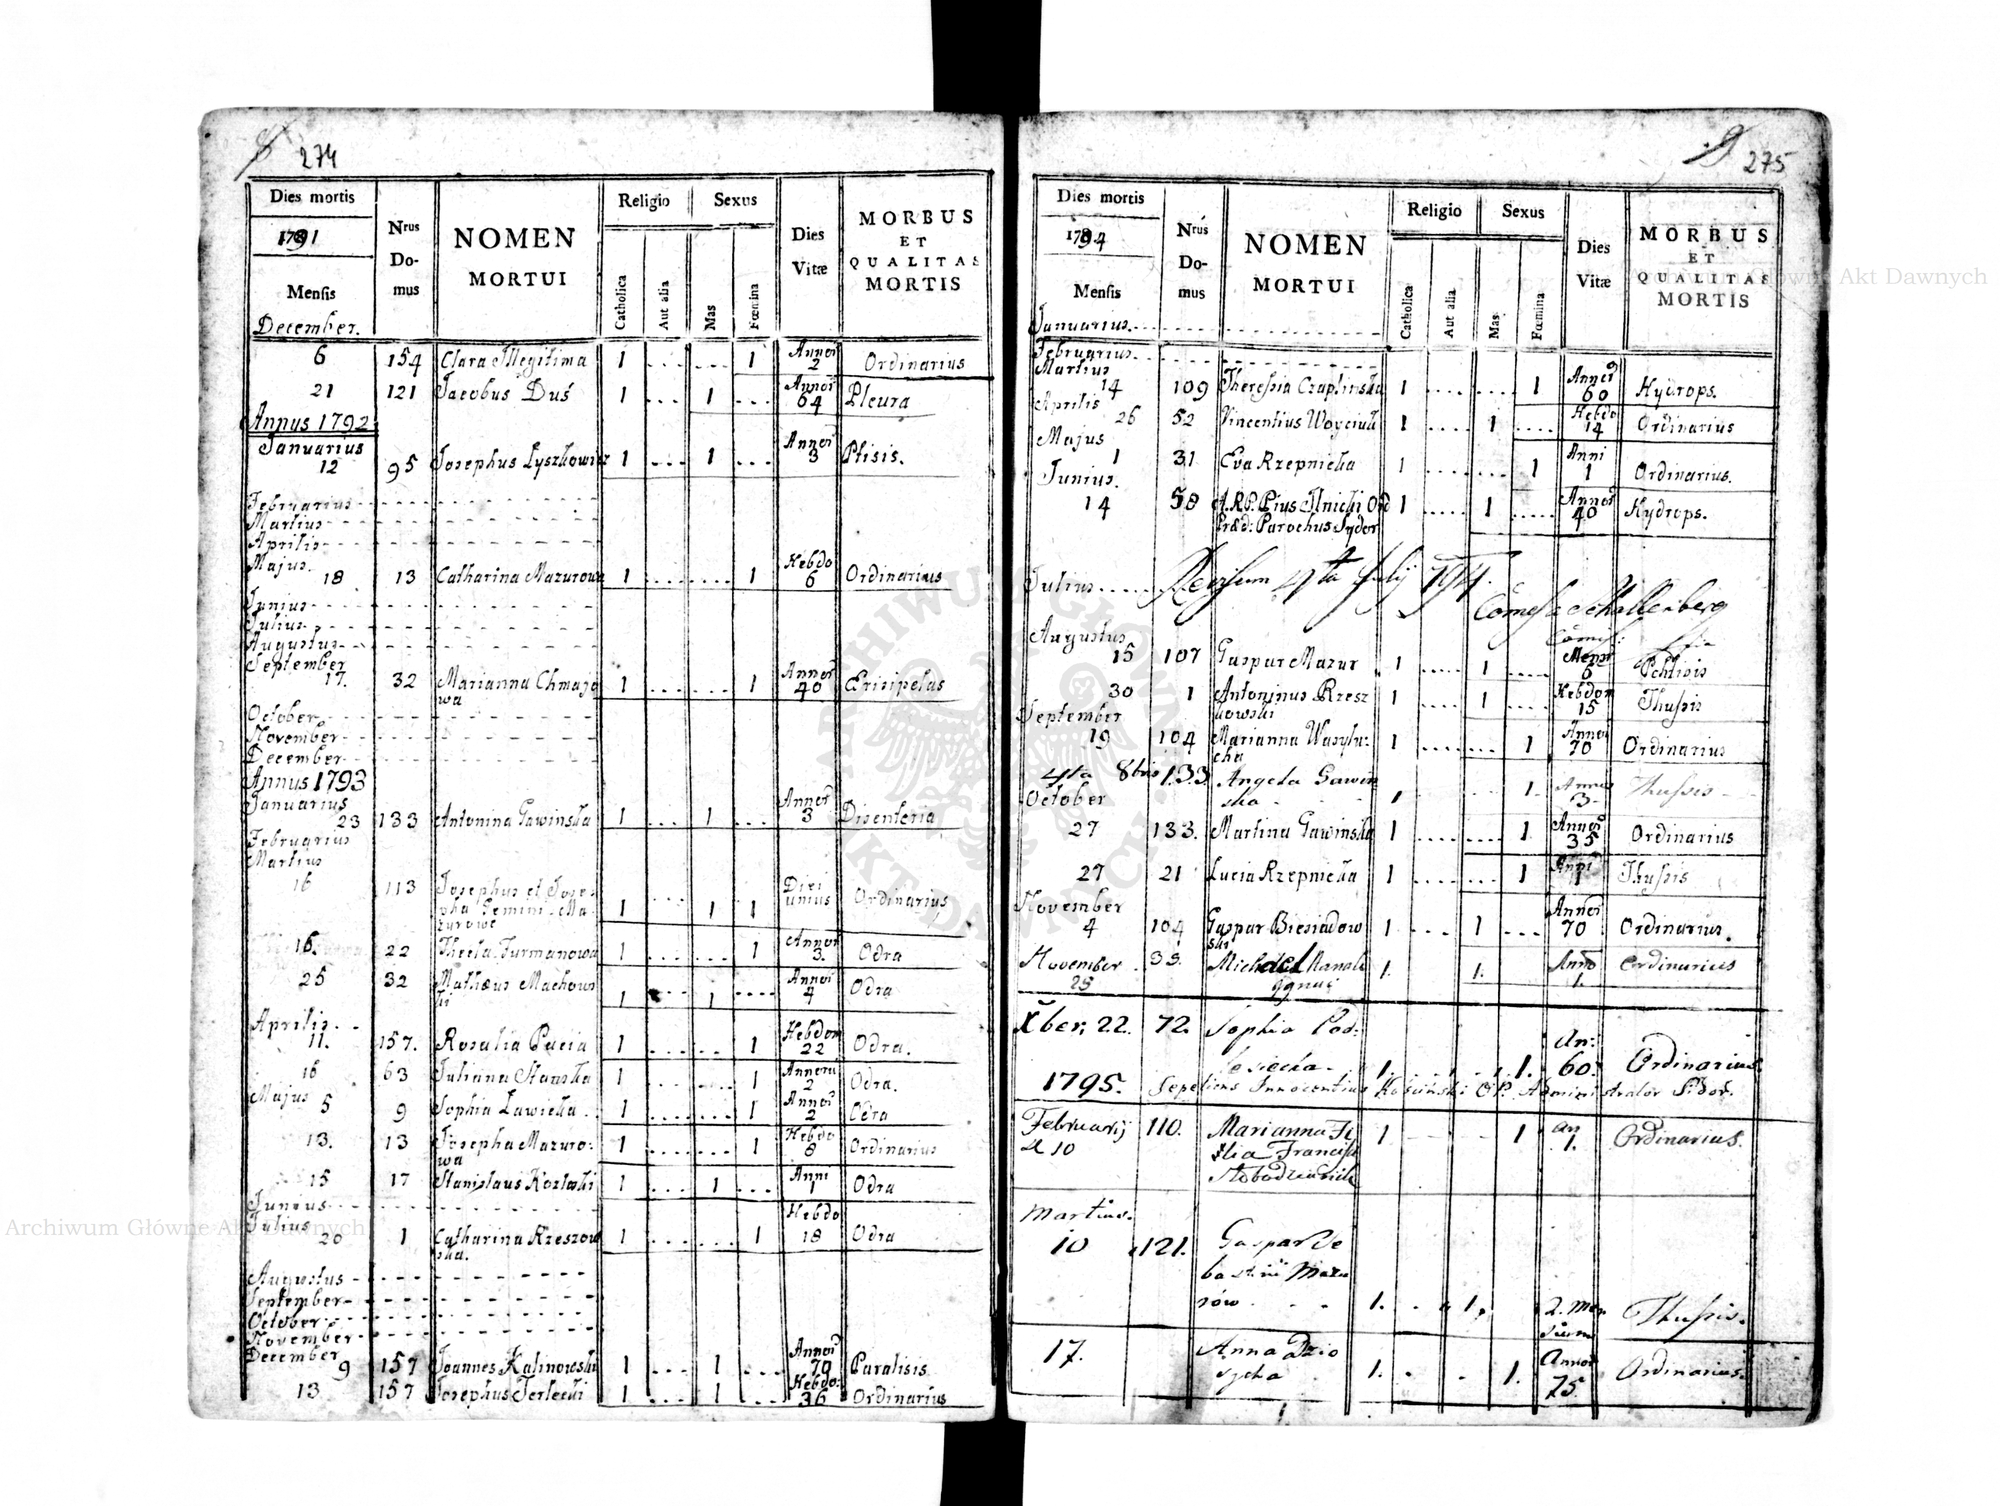 8 274
Dies mortis
1791
Mensis
Nrus Domus
NOMEN MORTUI
Religio
Catholica
Aut alia
Sexus
Mas
Fœmina
Dies Vitæ
MORBUS ET QUALITAS MORTIS
December.
6 154 Clara Illegitima 1 1 Annor 2 Ordinarius
21 121 Jacobus Duś 1 1 Annor 64 Pleura
Annus 1792
Januarius
12 95 Josephus Łyszkowicz 1 1 Annor 3 Ptisis.
Februarius
Martius
Aprilis
Majus.
18 13 Catharina Mazurowa 1 1 Hebdo 6 Ordinarius
Junius
Julius
Augustus
September
17. 32 Marianna Chmajo
wa 1 1 Annor 40 Erisipelas
October
November
December
Annus 1793
Januarius
23 133 Antonina Gawinska 1 1 Annor 3 Disenteria
Februarius
Martius
16 113 Josephus et Jose
pha Gemini Ma
zurowe 1 1 1 Diei unius Ordinarius
16. 22 Thecla Furmanowa 1 1 Annor 3. Odra
25 32 Mathæus Machows
ki 1 1 Annor 4 Odra
Aprilis
11. 157. Rosalia Pucia 1 1 Hebdom 22 Odra.
16 63 Juliana Stanska 1 1 Annoru 2 Odra.
Majus
5 9 Sophia Ławicka 1 1 Annor 2 Odra
13. 13 Josepha Mazuro:
wa 1 1 Hebdo 8 Ordinarius
15 17 Stanislaus Kozłoski 1 1 Anni 1 Odra
Junius
Julius
20 1 Catharina Rzeszow
ska. 1 1 Hebdo 18 Odra
Augustus
September
October
November
December
9 157 Joannes Kalinowski 1 1 Annor 70 Paralisis
13 157 Josephus Terlecki 1 1 Hebdo: 36 Ordinarius
9 275
Dies mortis
1794
Mensis
Nrus Domus
NOMEN MORTUI
Religio
Catholica
Aut alia
Sexus
Mas
Fœmina
Dies Vitæ
MORBUS ET QUALITAS MORTIS
Januarius.
Februarius
Martius
14 109 Theressia Czaplinska 1 1 Annor 60 Hydrops.
Aprilis
26 52 Vincentius Woyciuk 1 1 Hebdo 14 Ordinarius
Majus
1 31 Eva Rzepnicka 1 1 Anni 1 Ordinarius.
Junius.
14 58 A.R.P. Pius Ilnicki Ord
Præd: Parochus Sydor 1 1 Annor 40 Hydrops.
Julius Revisum 4ta Julij 794.
Comes Schallenberg
Augustus
15 107 Gaspar Mazur 1 1 Mens 6 Pchtisis
30 1 Antoninus Rzesz
kowski 1 1 Hebdom 15 Thussis
September
19 104 Marianna Wasylu
cha 1 1 Annor 70 Ordinarius
4ta 8bris 133 Angela Gawin
ska 1 1. Annor 3 Thussis
October
27 133. Martina Gawinska 1 1 Annor 35 Ordinarius
27 21 Lucia Rzepnicka 1 1 Anni 1 Thussis
November
4 104 Gaspar Biesiadow
ski 1 1 Annor 70 Ordinarius.
November
25 Michael 1. 1. Anno 1. Ordinarius
Xber; 22. 72. Sophia Pod:
lesiecka 1. 1. An: 60. Ordinarius.
1795. Sepeliens Innocentius Kosciński O.P. Administrator Sidor.
Februarij
10 110. Marianna Fi
lia Francis
Słobodzianick 1 1 an 1. Ordinarius.
Martius.
10 121. Gaspar Se
bastiii Mazu
rów 1. 1. 2. Men
sium Thussis.
17. Anna Dzio
sycha 1. 1. Annor 75. Ordinarius.
Archiwum Główne Akt Dawnych
Archiwum Główne Akt Dawnych
ARCHIWUM GŁÓWNE AKT DAWNYCH